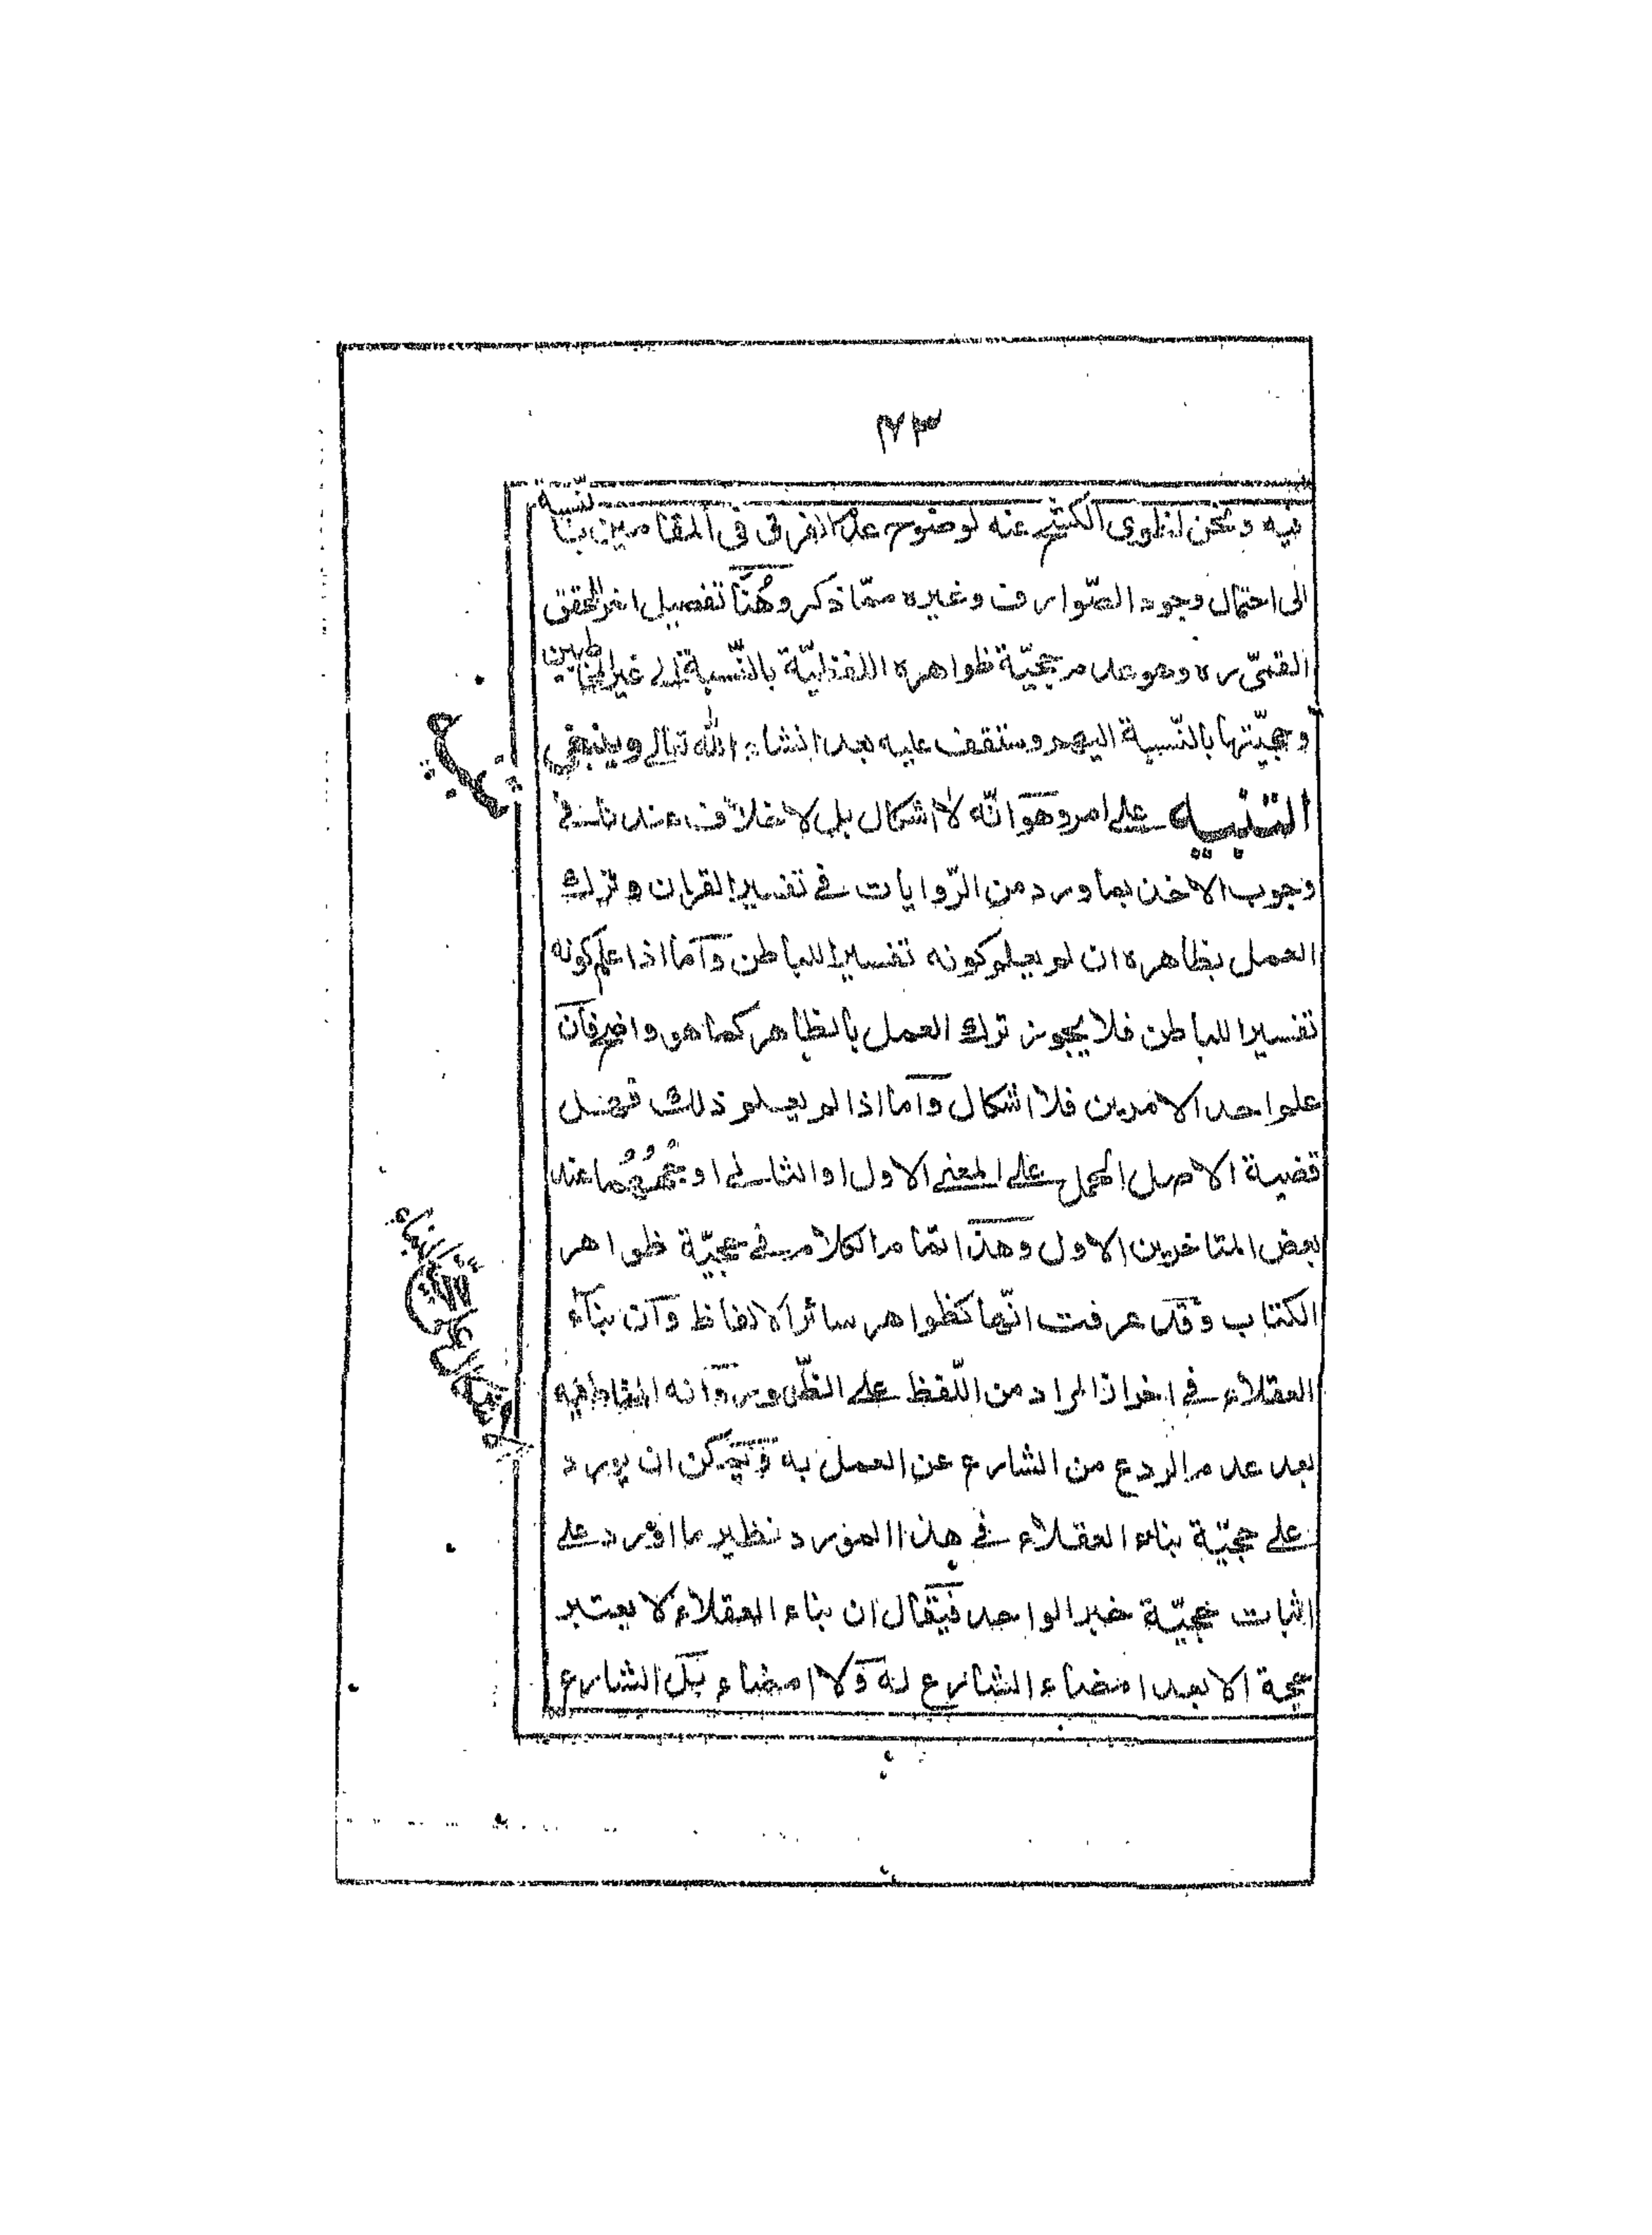 ٧٣
فيه ونحن نطوى الكشح عنه لوضوح عدم الفرق فى المقامين بالنسبة
الى احتمال وجود الصّوارف وغيره ممّا ذكر وهُنا تفصيل اخر للمحقق
القمىّ ره وهو عدم حجيّة ظواهره اللفظيّة بالنّسبة الى غير المخاطبين
وحجيّتها بالنّسبة اليهم وستقف عليه بعد انشاء الله تعالى وينبغى
التنبيه على امر وهو انّه لا اشكال بل لا خلاف عندنا فى
وجوب الاخذ بما ورد من الرّوايات فى تفسير القران وترك
العمل بظاهره ان لم يعلم كونه تفسيرا للباطن وآما اذا علم كونه
تفسيرا للباطن فلا يجوز ترك العمل بالظاهر كما هو واضح فآن
علم احد الامرين فلا اشكال وآما اذا لم يعلم ذلك فهل
قضية الاصل الحمل على المعنى الاول او الثانى او عند
بعض المتاخرين الاول وهذا تمام الكلام فى حجيّة ظواهر
الكتاب وقد عرفت انّها كظواهر سائر الالفاظ وآن بناء
العقلاء فى احراز المراد من اللّفظ على الظّهور وآنه المناط فيه
بعد عدم الردع من الشارع عن العمل به ويمكن ان يورد
على حجيّة بناء العقلاء فى هذا المورد نظير ما اورد على
اثبات حجيّة خبر الواحد فيقال ان بناء العقلاء لا يعتبر
حجة الا بعد امضاء الشارع له ولا امضاء بل الشارع